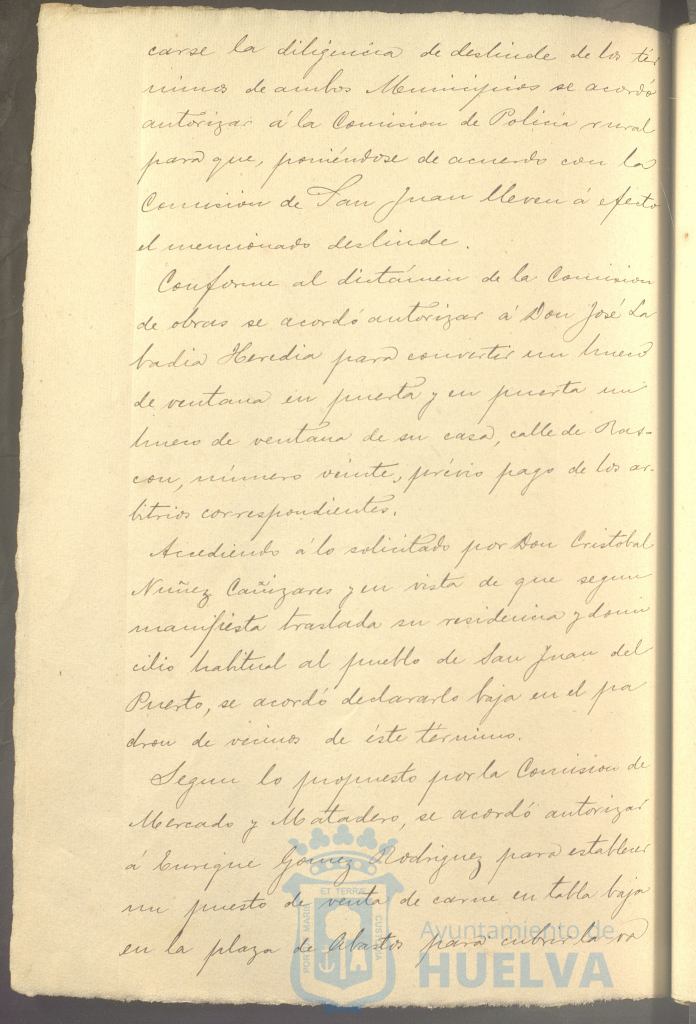 carse la diligencia de deslinde de los tér
minos de ambos Municipios se acordó
autorizar á la Comision de Policía rural
para que, poniéndose de acuerdo con la
Comision de San Juan lleven á efecto
el mencionado deslinde.
Conforme al dictámen de la Comision
de obras se acordó autorizar á Don José La
badia Heredia para convertir un hueco
de ventana en puerta y en puerta un
hueco de ventana de su casa, calle de Ras-
con, número veinte, prévio pago de los ar-
bitrios correspondientes.
Accediendo á lo solicitado por Don Cristobal
Nuñez Cañizares y en vista de que segun
manifiesta traslada su residencia y domi
cilio habitual al pueblo de San Juan del
Puerto, se acordó declararlo baja en el pa
dron de vecinos de éste término.
Segun lo propuesto por la Comision de
Mercado y Matadero, se acordó autorizar
á Enrique Gomez Rodriguez para establecer
un puesto de venta de carne en tabla baja
en la plaza de Abastos para cubrir la va
PORTUS MARIS ET TERRAE CUSTODIA
Ayuntamiento de
HUELVA